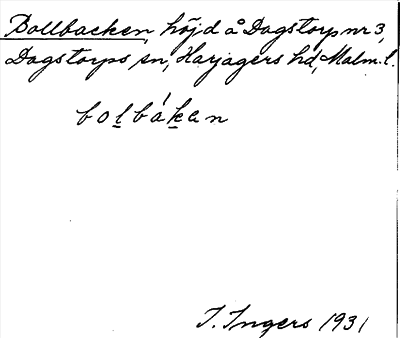 Bollbacken, höjd å Dagstorp nr 3,
Dagstorps sn, Harjagers hd, Malm. l.
bolbákan
I. Ingers 1931